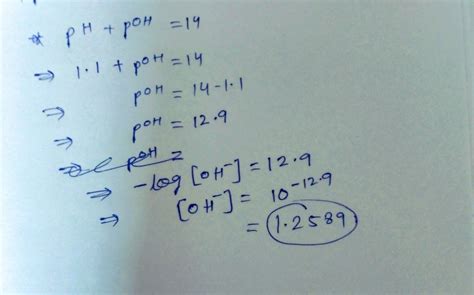 * pH + pOH = 14
⇒ 1.1 + pOH = 14
⇒ pOH = 14-1.1
⇒ pOH = 12.9
⇒ pOH =
⇒ -log [OH⁻] = 12.9
⇒ [OH⁻] = 10⁻¹²·⁹
= 1.2589